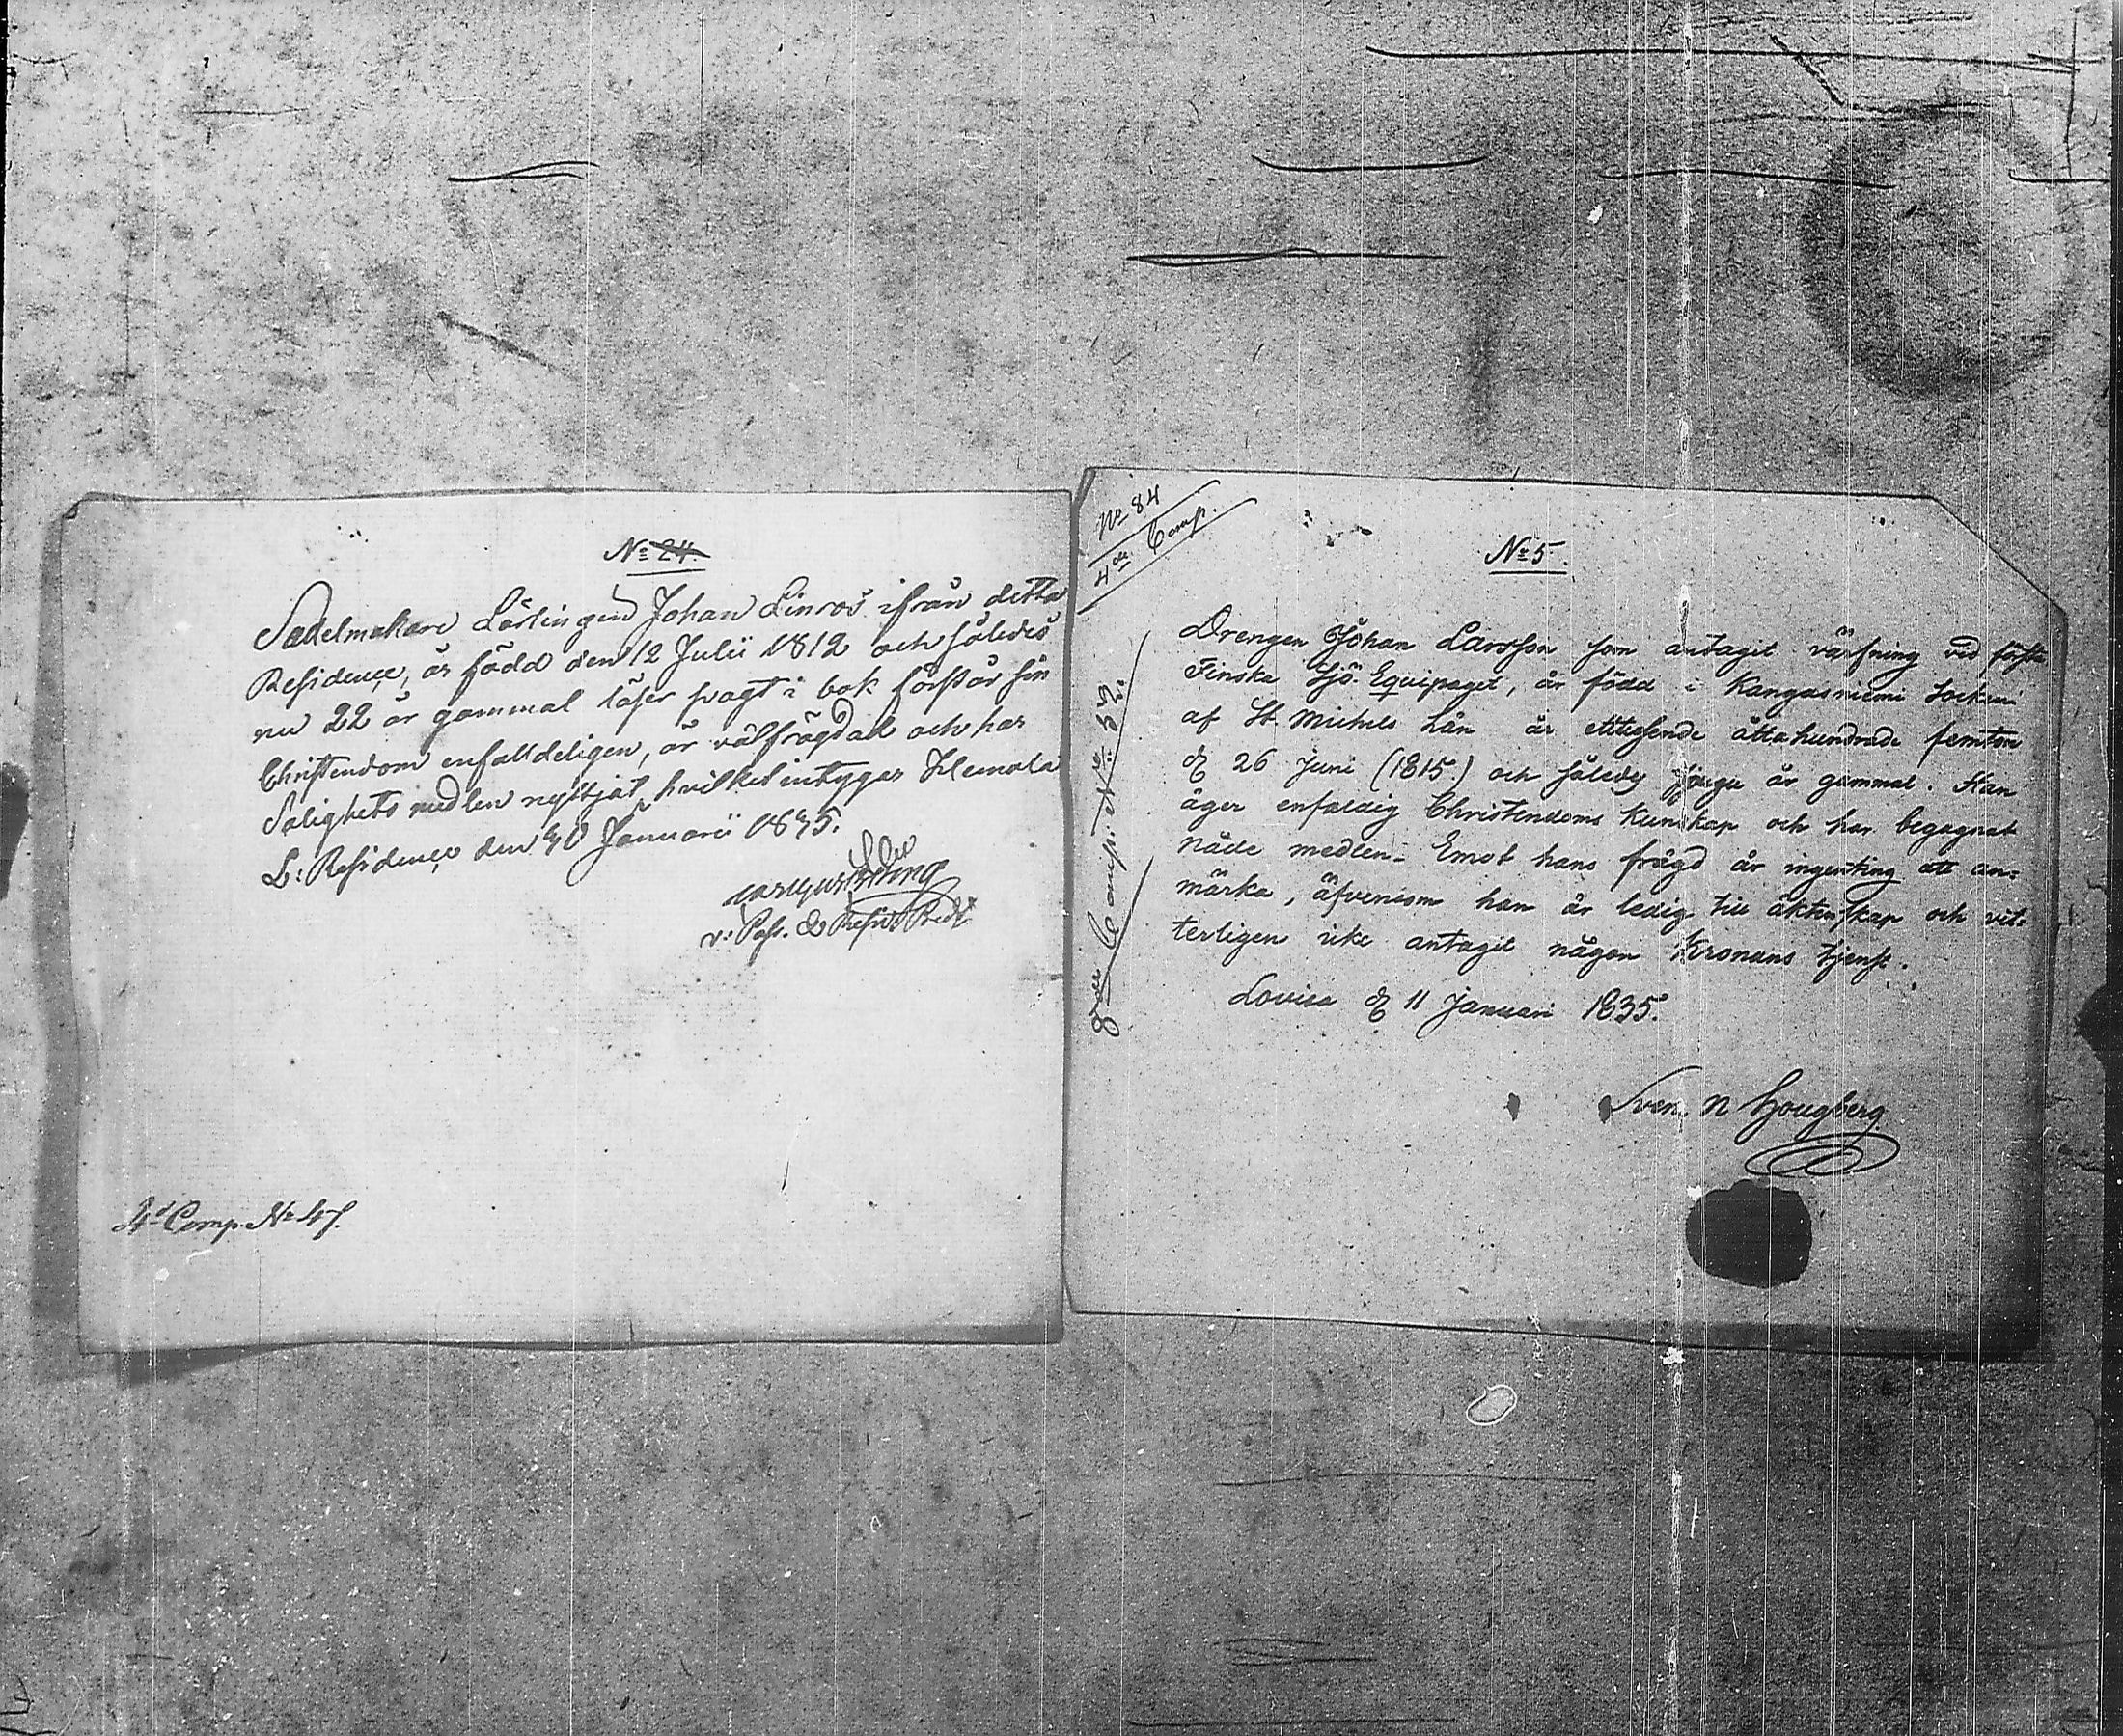 No 24.
Sadelmakare Lärlingen Johan Linros ifrån detta
Residence, är född den 12 Julii 1812 och således
nu 22 år gammal läser svagt i bok förstår sin
Christendom enfalldeligen, är välfrägdad och har
Salighets medlen nyttjat, hvilket intygar Heinola
L: Residence den 30 Januarii 1835.
v: Past. & Resid: Pred:
4d Comp. No 47.
No 84
4de Comp.
Comp: No 32.
No 5.
Drengen Johan Larsson som antagit värfning vid första
Finska Sjö-Equipaget, är född i Kangasniemi Socken
af St. Michels Län år ettusende åttahundrade femton
d 26 Juni (1815.) och således tjugu år gammal. Han
äger enfaldig Christendoms kunskap och har begagnat
nåde medlen. Emot hans frägd är ingenting att an-
märka, äfvensom han är ledig till äktenskap och vit-
terligen icke antagit någon Kronans tjenst.
Lovisa d 11 Januari 1835.
Sven N Hougberg